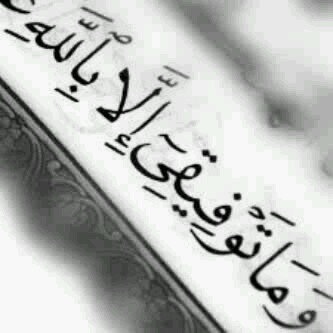 وَمَا تَوْفِيقِىٓ إِلَّا بِٱللَّهِ ۚ